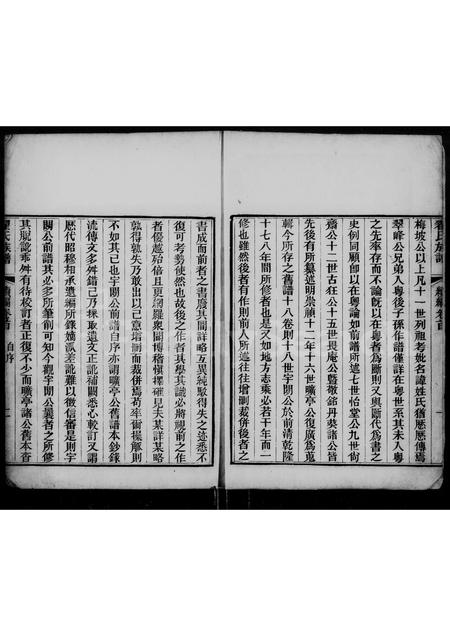 梅坡公以上凡十一世列祖考妣名諱姓氏猶歷歷傳焉
翠峰公兄弟入粵後子孫作譜僅詳在粵世系其未入粵
之先率存而不論既以在粵者為斷則又與斷代為書之
史例同顧即以在粵論如前譜所述七世伯堂公九世尚
齋公十二世古狂公十五世畏庵公暨敬銘丹葵諸公皆
先後有所纂述明崇禎十二年十六世曠亭公復廣為蒐
輯今所存之舊譜十八卷則十八世宇闊公於前清乾隆
十七八年間所修者也是又如地方志乘必若干年而一
修也雖然後者有作則前人所述往往增刪裁併後者之
書成而前者之書廢其間詳略互異純駁得失之迹悉不
復可考勢使然也故後之作者其學其識必將視前之作
者優越殆倍且更網羅衆聞博稽愼擇確見夫某詳某略
孰得孰失乃敢出以己意增刪而裁併焉苟率爾操觚則
不如其已也宇闊公前譜自序亦謂曠亭公舊譜本鈔錄
流傳文多舛錯己乃採取遺文正訛補闕悉心較訂又謂
歷代昭穆相承遺編所錄嬀貳差訛難以徵信審是則宇
闊公前譜其必多所筆削可知今觀宇闊公曩者之所修
其脫訛乖舛有待校訂者正復不少而曠亭諸公舊本杳
自序